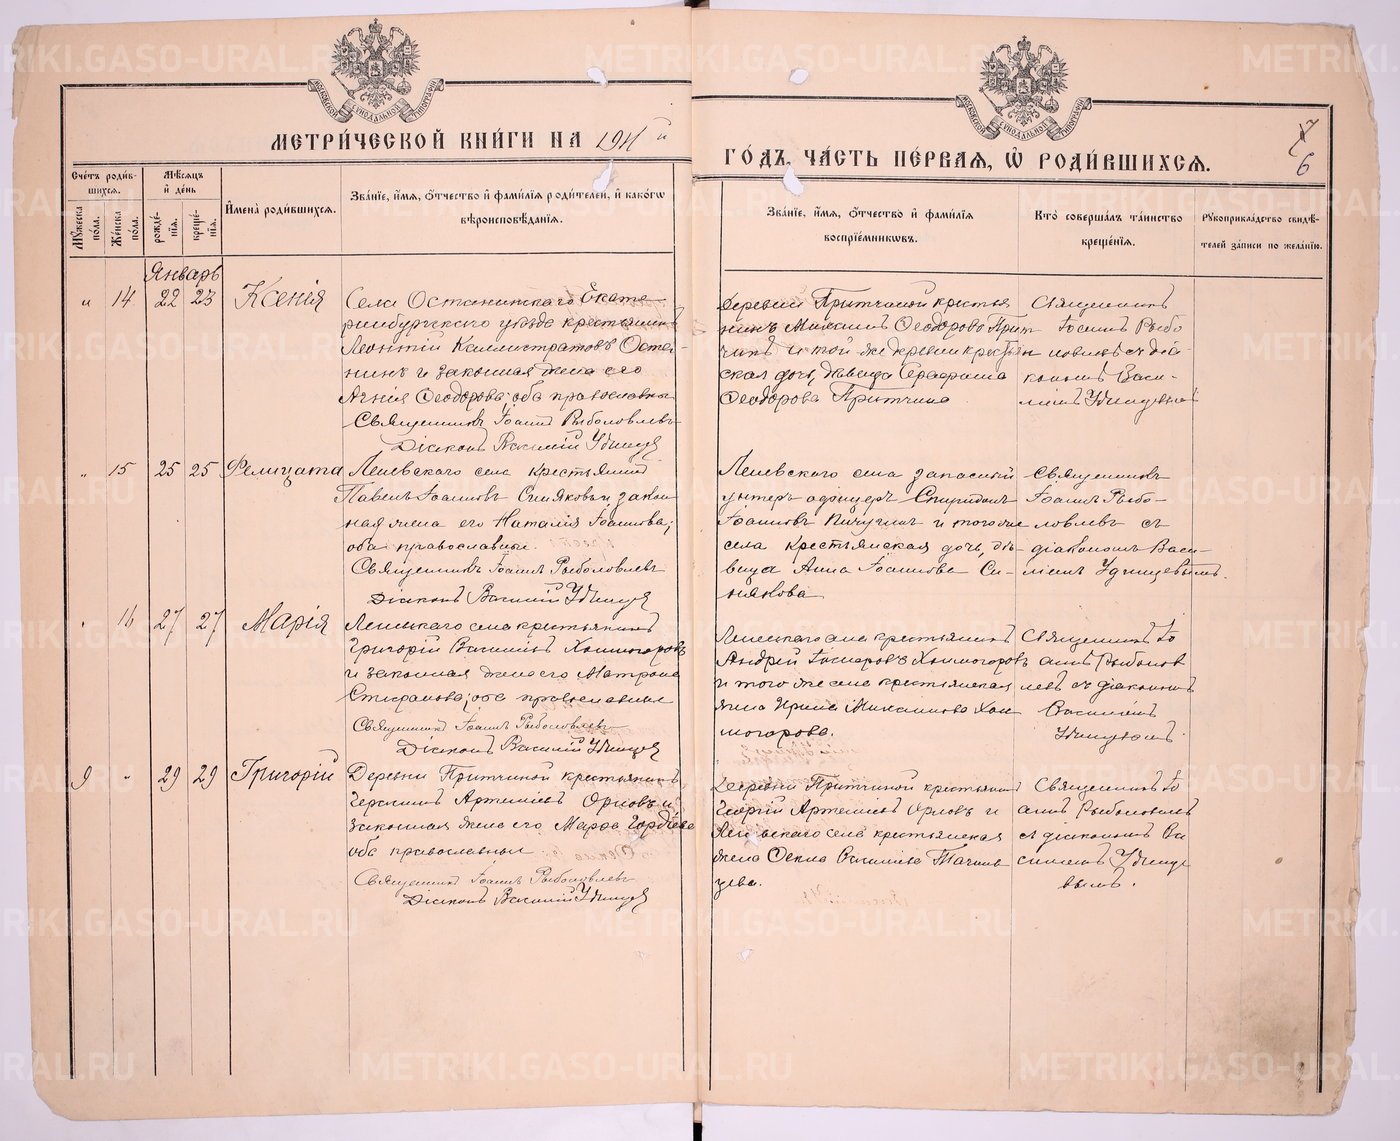 МЕТРИ́ЧЕСКОЙ КНИ́ГИ НА 1911й ГО́ДЪ, ЧА́СТЬ ПЕ́РВАѦ, Ѡ҆ РОДИ́ВШИХСѦ.
7
6
МОСКОВСКОЙ СѴНОДАЛЬНОЙ ТИПОГРАФІИ
МОСКОВСКОЙ СѴНОДАЛЬНОЙ ТИПОГРАФІИ
Сче́тъ роди́в-
шихсѧ.
Мꙋ́жеска по́ла.
Же́нска по́ла.
Мѣ́сѧцъ и҆ де́нь
рожде́-
нїѧ.
креще́-
нїѧ.
И҆мена̀ роди́вшихсѧ.
Зва́нїе, и҆́мѧ, ѻ҆́тчество и҆ фами́лїѧ роди́телей, и҆ како́гѡ
вѣроисповѣ́данїѧ.
Зва́нїе, и҆́мѧ, ѻ҆́тчество и҆ фами́лїѧ
воспрїе́мникѡвъ.
Кто̀ соверша́лъ та́инство
креще́нїѧ.
Рꙋкоприкла́дство свидѣ́-
телей за́писи по жела́нїю.
Январь
„ 14 22 23 Ксенія
Села Останинскаго Екате-
ринбургскаго уѣзда крестьянинъ
Леонтій Каллистратовъ Оста-
нинъ и законная жена его
Агнія Ѳеодорова; оба православные
Священникъ Іоаннъ Рыболовлевъ
Діаконъ Василій Удинцев
Деревни Притчиной крестья
нинъ Михаилъ Ѳеодоровъ Прит
чинъ и той же деревни крестьян
ская дочь, дѣвица Серафима
Ѳеодорова Притчина
Священникъ
Іоаннъ Рыбо
ловлевъ съ діа-
кономъ Васи-
ліемъ Удинцевымъ
„ 15 25 25 Фелицата
Леневскаго села крестьянинъ
Павелъ Іоанновъ Синяковъ и закон
ная жена его Наталія Іоаннова;
оба православные.
Священникъ Іоаннъ Рыболовлевъ
Діаконъ Василій Удинцев
Леневскаго села запасный
унтеръ офицеръ Спиридонъ
Іоанновъ Пичугинъ и того же
села крестьянская дочь, дѣ-
вица Анна Іоаннова Си-
някова
Священникъ
Іоаннъ Рыбо-
ловлевъ съ
діакономъ Васи-
ліемъ Удинцевымъ.
„ 16 27 27 Марія
села крестьянинъ
Григорій Васильевъ Холмогоровъ
и законная жена его Матрона
Стефанова; оба православные
Священникъ Іоаннъ Рыболовлевъ
Діаконъ Василій Удинцев
села крестьянинъ
Андрей Холмогоровъ
и того же села крестьянская
жена Ирина Михаилова Хол
могорова.
Священникъ Іо
аннъ Рыболов
левъ съ діакономъ
Василіемъ
Удинцевымъ.
9 „ 29 29 Григорій
Деревни Притчиной крестьянинъ
Герасимъ Артеміевъ Орловъ и
законная жена его Марѳа Гордѣева
оба православные
Священникъ Іоаннъ Рыболовлевъ
Діаконъ Василій Удинцев
Деревни Притчиной крестьянинъ
Георгій Артеміевъ Орловъ и
села крестьянская
жена Ѳекла Васильева
Священникъ Іо
аннъ Рыболовлевъ
съ діакономъ Ва
силіемъ Удинце
вымъ.
METRIKI.GASO-URAL.RU